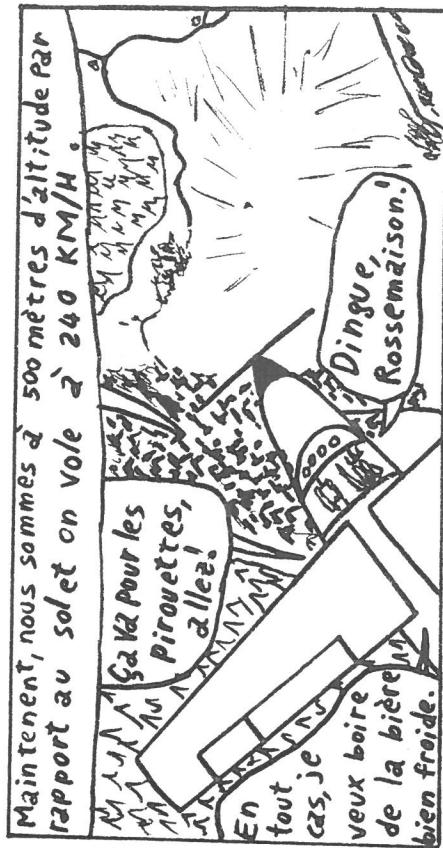 Maintenent, nous sommes à 500 mètres d'altitude par
rapport au sol et on vole à 240 KM/H.
Ça va pour les
pirouettes,
allez!
Dingue,
Rossemaison!
En
tout
cas, je
veux boire
de la bière
bien froide.